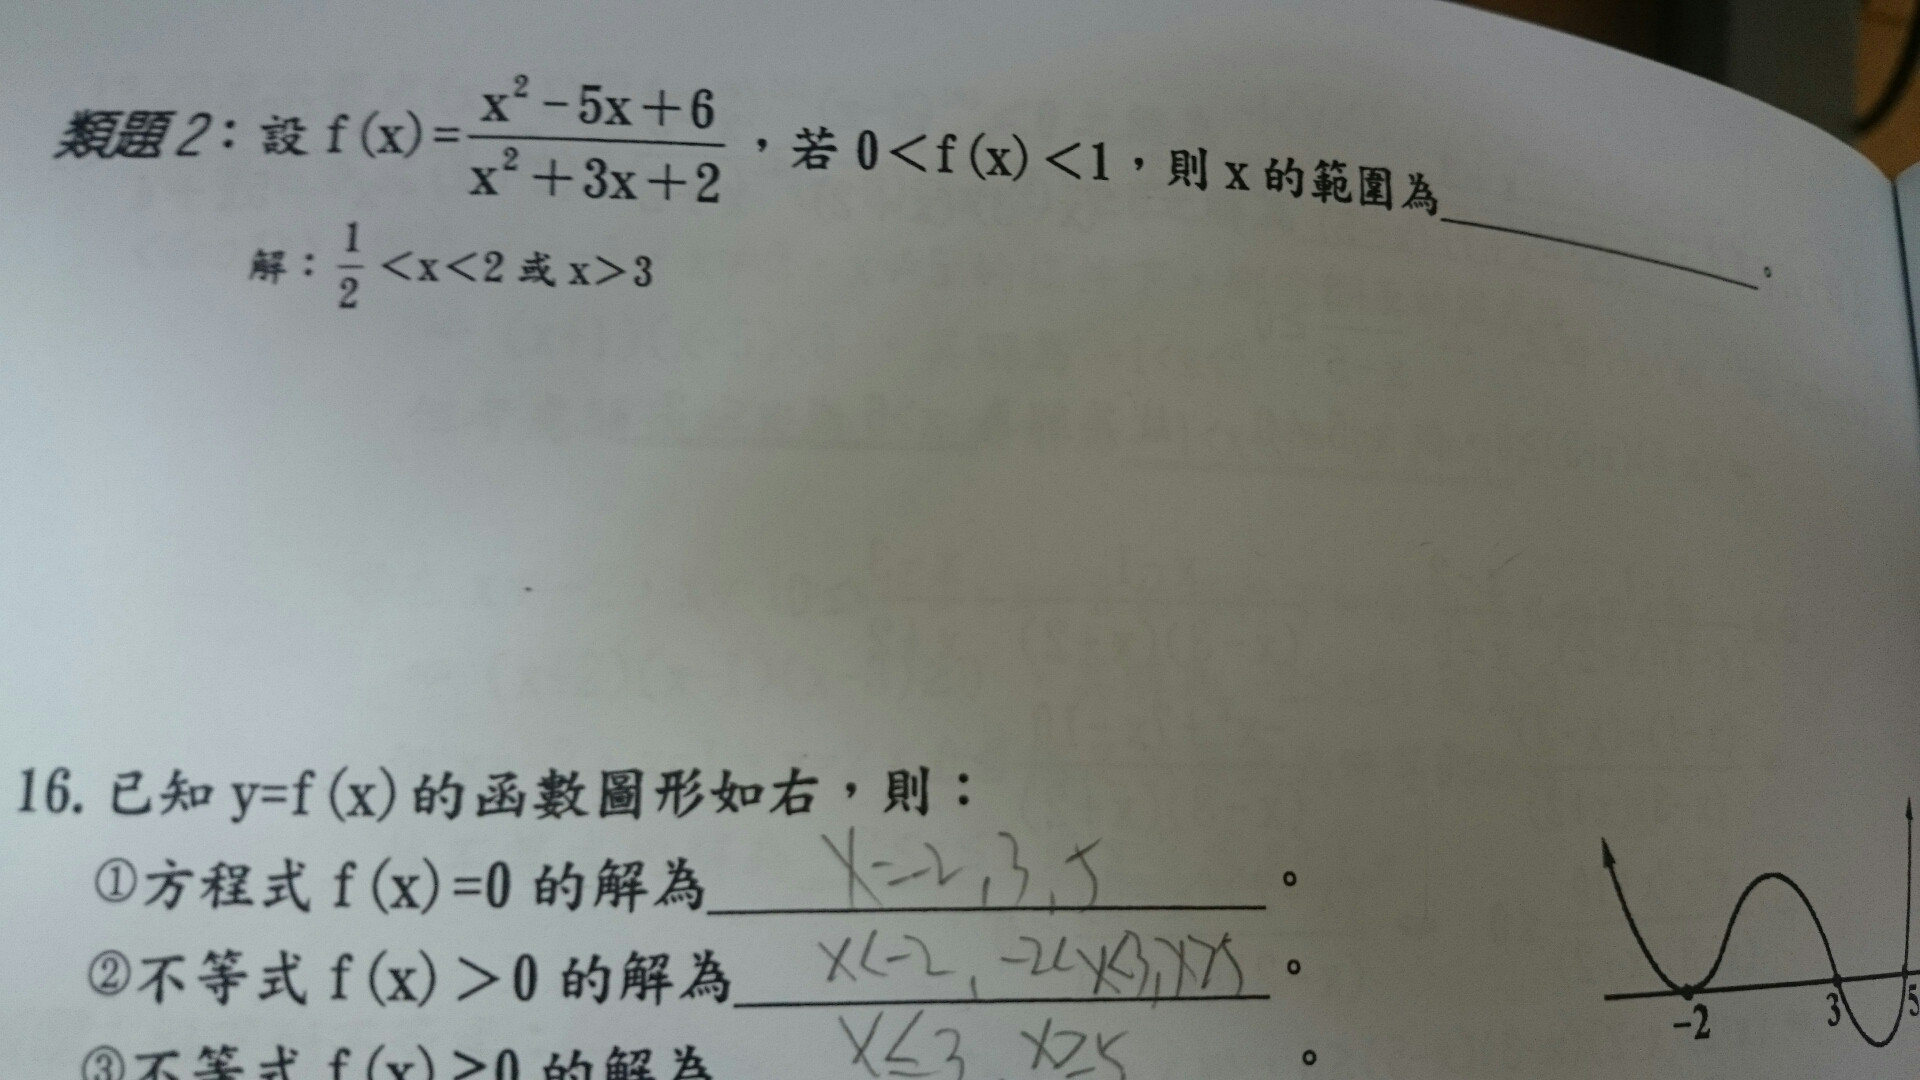 類題2：設 f(x)=\frac{x²-5x+6}{x²+3x+2}，若 0<f(x)<1，則 x 的範圍為＿＿＿＿。
解：\frac{1}{2}<x<2 或 x>3
16. 已知 y=f(x) 的函數圖形如右，則：
①方程式 f(x)=0 的解為 x=-2,3,5。
②不等式 f(x)>0 的解為 x<-2, -2<x<3, x>5。
③不等式 f(x)≥0 的解為 x≤3, x≥5。
-2 3 5